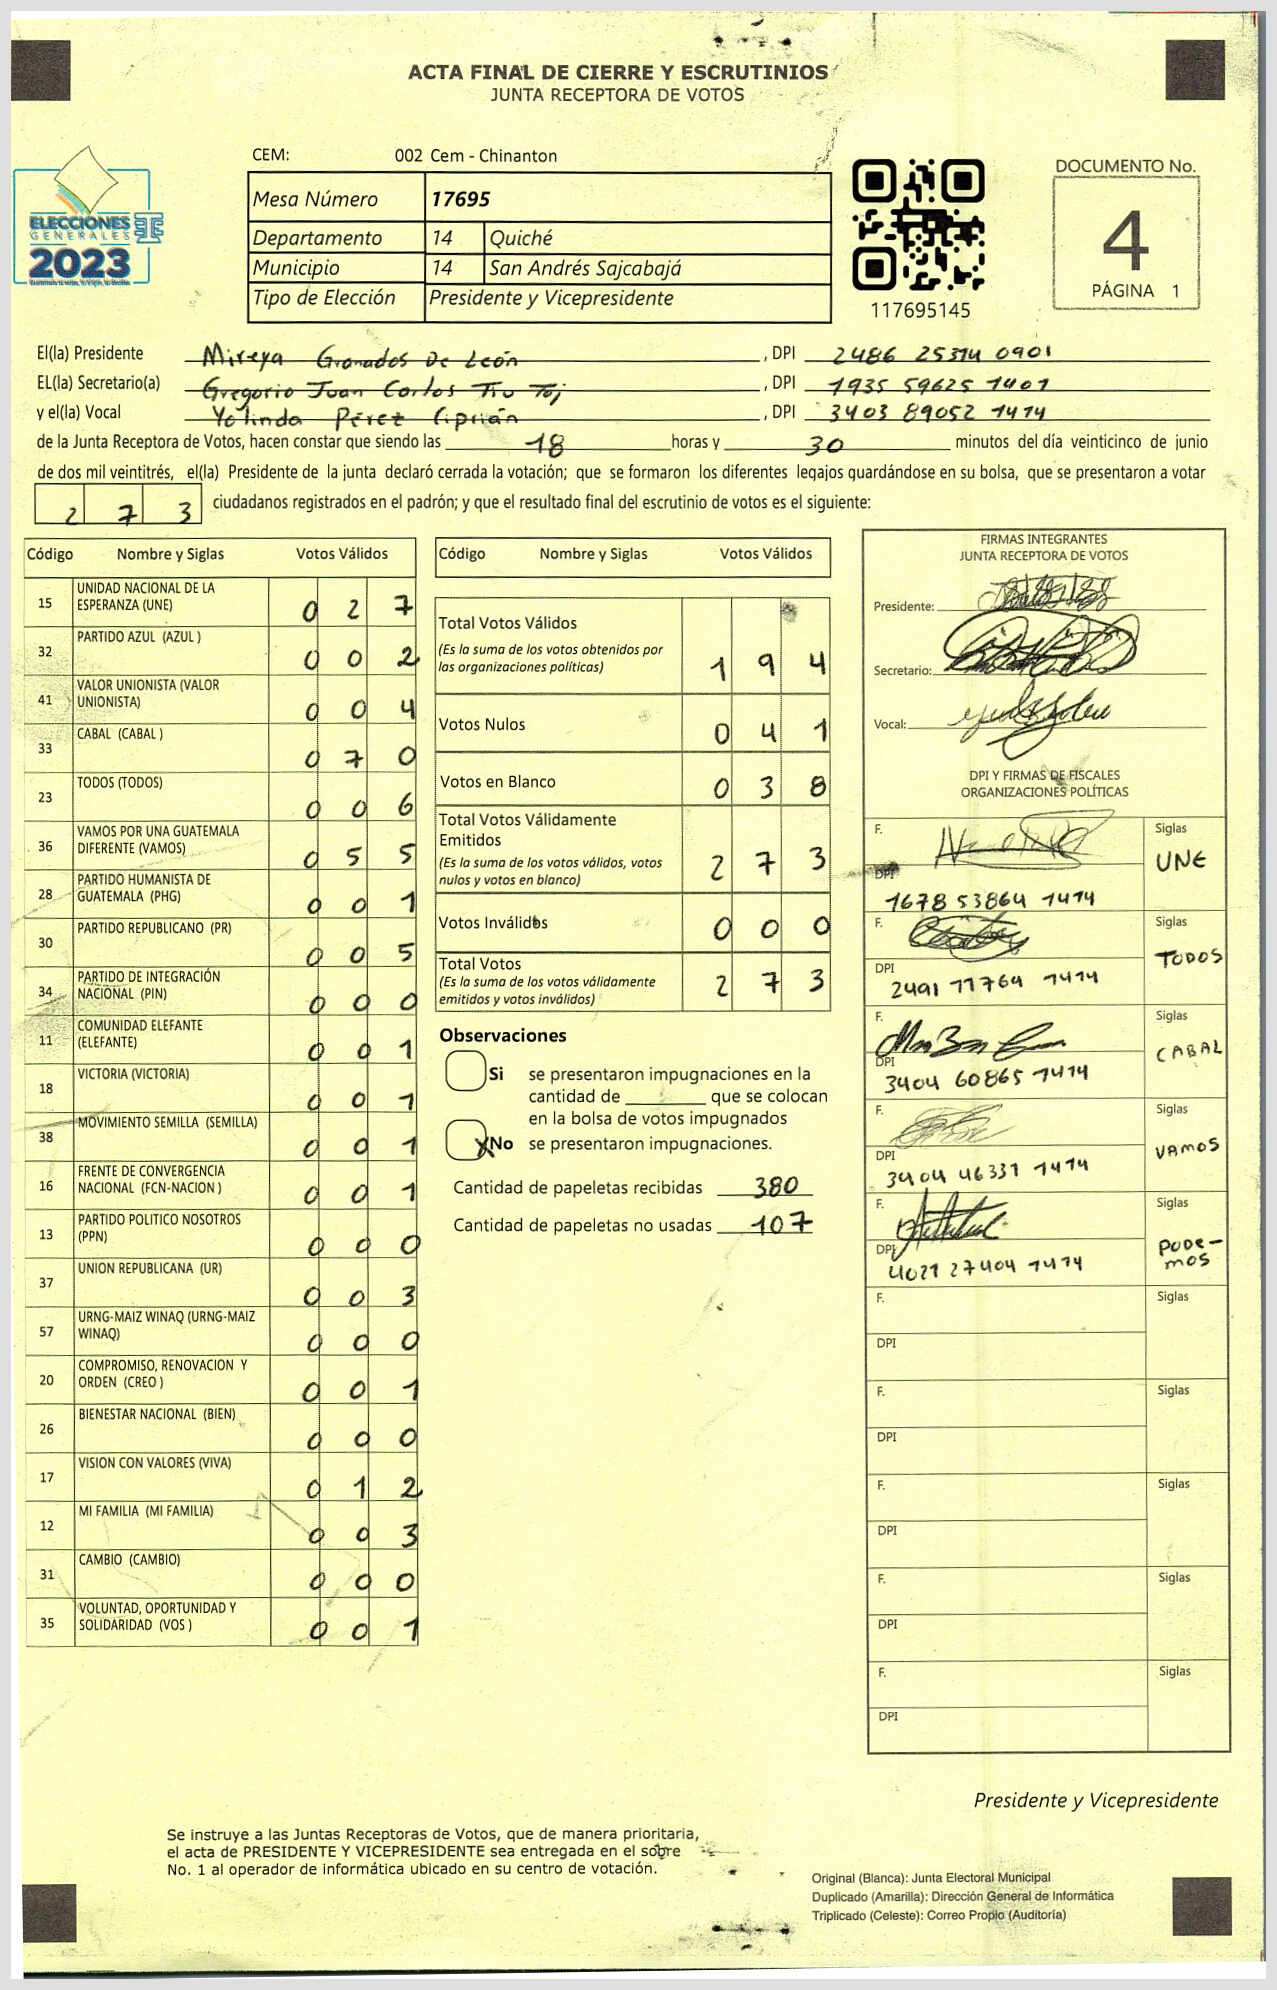 ACTA FINAL DE CIERRE Y ESCRUTINIOS
JUNTA RECEPTORA DE VOTOS
ELECCIONES
GENERALES
2023
CEM: 002 Cem - Chinanton
Mesa Número 17695
Departamento 14 Quiché
Municipio 14 San Andrés Sajcabajá
Tipo de Elección Presidente y Vicepresidente
117695145
DOCUMENTO No.
4
PÁGINA 1
El(la) Presidente Mireya Granados De León, DPI 2486 25314 0901
EL(la) Secretario(a) Gregorio Juan Carlos Tiu Toj, DPI 1935 59625 1401
y el(la) Vocal Yolinda Pérez Ciprián, DPI 3403 89052 1414
de la Junta Receptora de Votos, hacen constar que siendo las 18 horas y 30 minutos del día veinticinco de junio
de dos mil veintitrés, el(la) Presidente de la junta declaró cerrada la votación; que se formaron los diferentes legajos guardándose en su bolsa, que se presentaron a votar
2 7 3 ciudadanos registrados en el padrón; y que el resultado final del escrutinio de votos es el siguiente:
Código Nombre y Siglas Votos Válidos
15 UNIDAD NACIONAL DE LA
ESPERANZA (UNE) 0 2 7
32 PARTIDO AZUL (AZUL ) 0 0 2
41 VALOR UNIONISTA (VALOR
UNIONISTA) 0 0 4
33 CABAL (CABAL ) 0 7 0
23 TODOS (TODOS) 0 0 6
36 VAMOS POR UNA GUATEMALA
DIFERENTE (VAMOS) 0 5 5
28 PARTIDO HUMANISTA DE
GUATEMALA (PHG) 0 0 1
30 PARTIDO REPUBLICANO (PR) 0 0 5
34 PARTIDO DE INTEGRACIÓN
NACIONAL (PIN) 0 0 0
11 COMUNIDAD ELEFANTE
(ELEFANTE) 0 0 1
18 VICTORIA (VICTORIA) 0 0 1
38 MOVIMIENTO SEMILLA (SEMILLA) 0 0 1
16 FRENTE DE CONVERGENCIA
NACIONAL (FCN-NACION ) 0 0 1
13 PARTIDO POLITICO NOSOTROS
(PPN) 0 0 0
37 UNION REPUBLICANA (UR) 0 0 3
57 URNG-MAIZ WINAQ (URNG-MAIZ
WINAQ) 0 0 0
20 COMPROMISO, RENOVACION Y
ORDEN (CREO ) 0 0 1
26 BIENESTAR NACIONAL (BIEN) 0 0 0
17 VISION CON VALORES (VIVA) 0 1 2
12 MI FAMILIA (MI FAMILIA) 0 0 3
31 CAMBIO (CAMBIO) 0 0 0
35 VOLUNTAD, OPORTUNIDAD Y
SOLIDARIDAD (VOS ) 0 0 1
Código Nombre y Siglas Votos Válidos
Total Votos Válidos
(Es la suma de los votos obtenidos por
las organizaciones políticas) 1 9 4
Votos Nulos 0 4 1
Votos en Blanco 0 3 8
Total Votos Válidamente
Emitidos
(Es la suma de los votos válidos, votos
nulos y votos en blanco) 2 7 3
Votos Inválidos 0 0 0
Total Votos
(Es la suma de los votos válidamente
emitidos y votos inválidos) 2 7 3
Observaciones
Si se presentaron impugnaciones en la
cantidad de ________ que se colocan
en la bolsa de votos impugnados
X No se presentaron impugnaciones.
Cantidad de papeletas recibidas 380
Cantidad de papeletas no usadas 107
FIRMAS INTEGRANTES
JUNTA RECEPTORA DE VOTOS
Presidente:
Secretario:
Vocal:
DPI Y FIRMAS DE FISCALES
ORGANIZACIONES POLÍTICAS
F. Siglas
UNE
DPI
1678 53864 1414
F. Siglas
TODOS
DPI
2491 11764 1414
F. Siglas
CABAL
DPI
3404 60865 1414
F. Siglas
VAMOS
DPI
3404 46331 1414
F. Siglas
PODE-
MOS
DPI
4021 27404 1414
F. Siglas
DPI
F. Siglas
DPI
F. Siglas
DPI
F. Siglas
DPI
F. Siglas
DPI
Presidente y Vicepresidente
Se instruye a las Juntas Receptoras de Votos, que de manera prioritaria,
el acta de PRESIDENTE Y VICEPRESIDENTE sea entregada en el sobre
No. 1 al operador de informática ubicado en su centro de votación.
Original (Blanca): Junta Electoral Municipal
Duplicado (Amarilla): Dirección General de Informática
Triplicado (Celeste): Correo Propio (Auditoría)